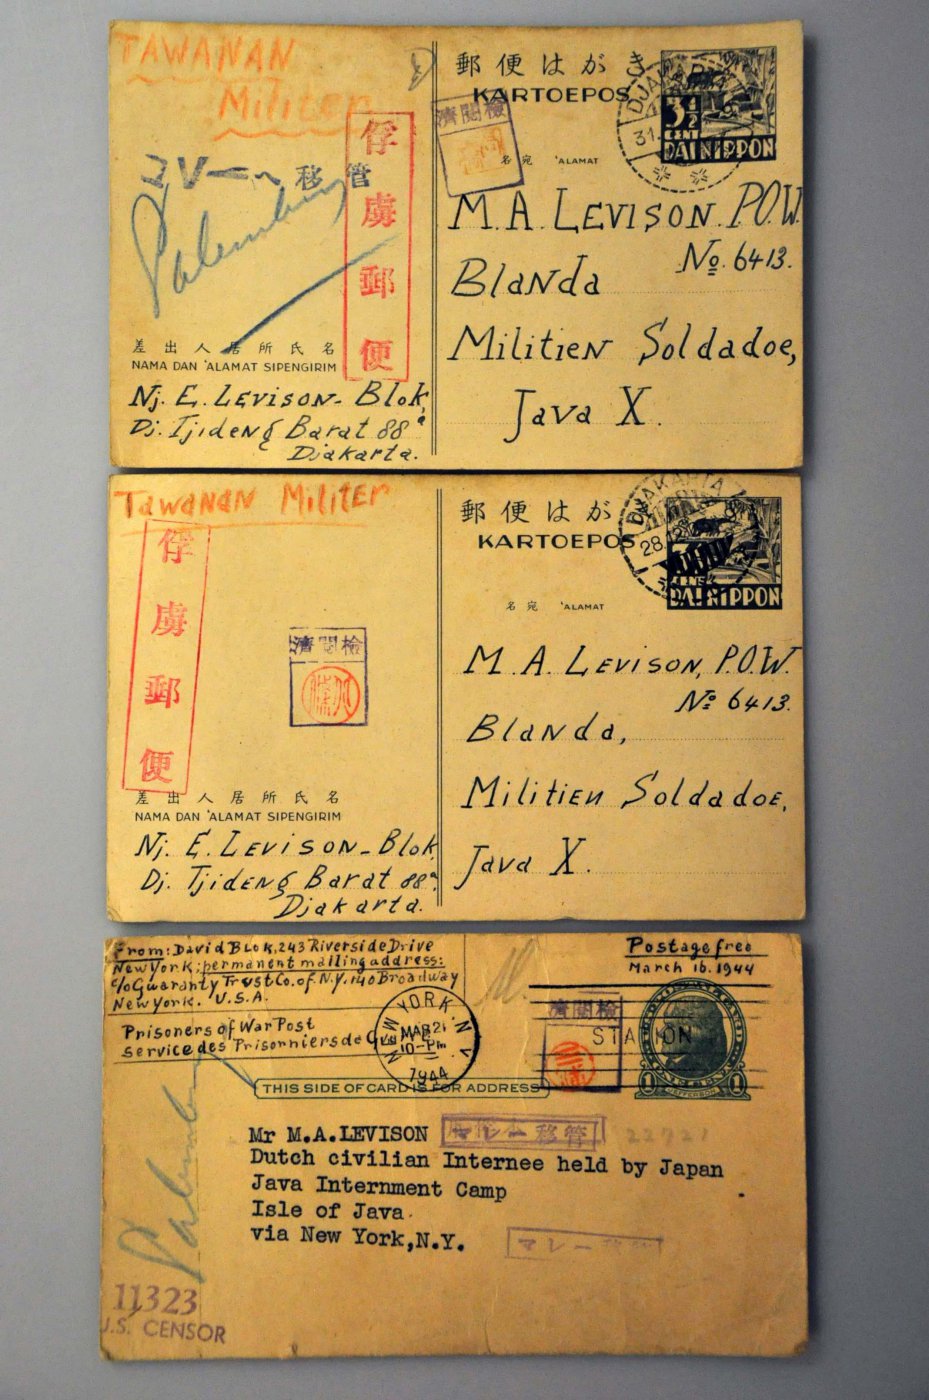 TAWANAN
Militer
マレーヘ 移管
Palembang
俘虜郵便
差出人居所氏名
NAMA DAN 'ALAMAT SIPENGIRIM
Nj. E. LEVISON-Blok,
Dj. Tjideng Barat 88a
Djakarta.
郵便はがき
KARTOEPOS
濟閱檢
DJAKARTA
31.
3½
CENT
DAI NIPPON
名宛 'ALAMAT
M.A. LEVISON. P.O.W.
No. 6413.
Blanda
Militien Soldadoe,
Java X.
Tawanan Militer
俘虜郵便
濟閱檢
差出人居所氏名
NAMA DAN 'ALAMAT SIPENGIRIM
Nj. E. LEVISON-Blok
Dj. Tjideng Barat 88a.
Djakarta.
郵便はが
KARTOEPOS
DJAKARTA
28.12
DAI NIPPON
名宛 'ALAMAT
M. A. LEVISON, P.O.W.
No 6413.
Blanda,
Militien Soldadoe,
Java X.
From: David Blok, 243 Riverside Drive
New York; permanent mailing address:
c/o Guaranty Trust Co. of N.Y. 140 Broadway
New York. U.S.A.
Prisoners of War Post
Service des Prisonniers de G
NEW YORK, N.Y.
MAR 21
10-PM
1944
Postage free
March 16. 1944
濟閱檢
STATION
1
JEFFERSON
1
THIS SIDE OF CARD IS FOR ADDRESS
Mr M.A.LEVISON
マレー移管
22721
Dutch civilian Internee held by Japan
Java Internment Camp
Isle of Java
via New York,N.Y.
マレー
Palemb
11323
U.S. CENSOR